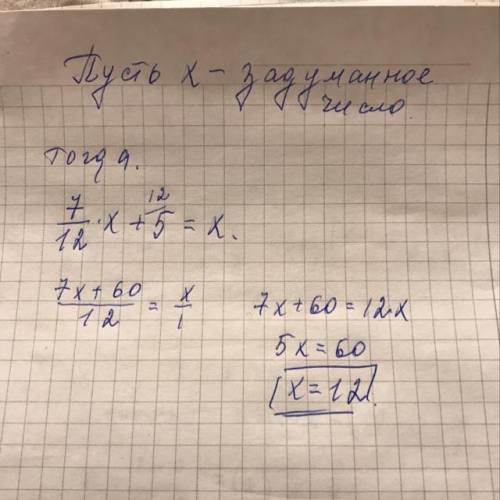 Пусть x – задуманное
число
тогда.
7/12 · x + 5^12 = x.
7x+60/12 = x/1
7x+60=12·x
5x=60
x=12.